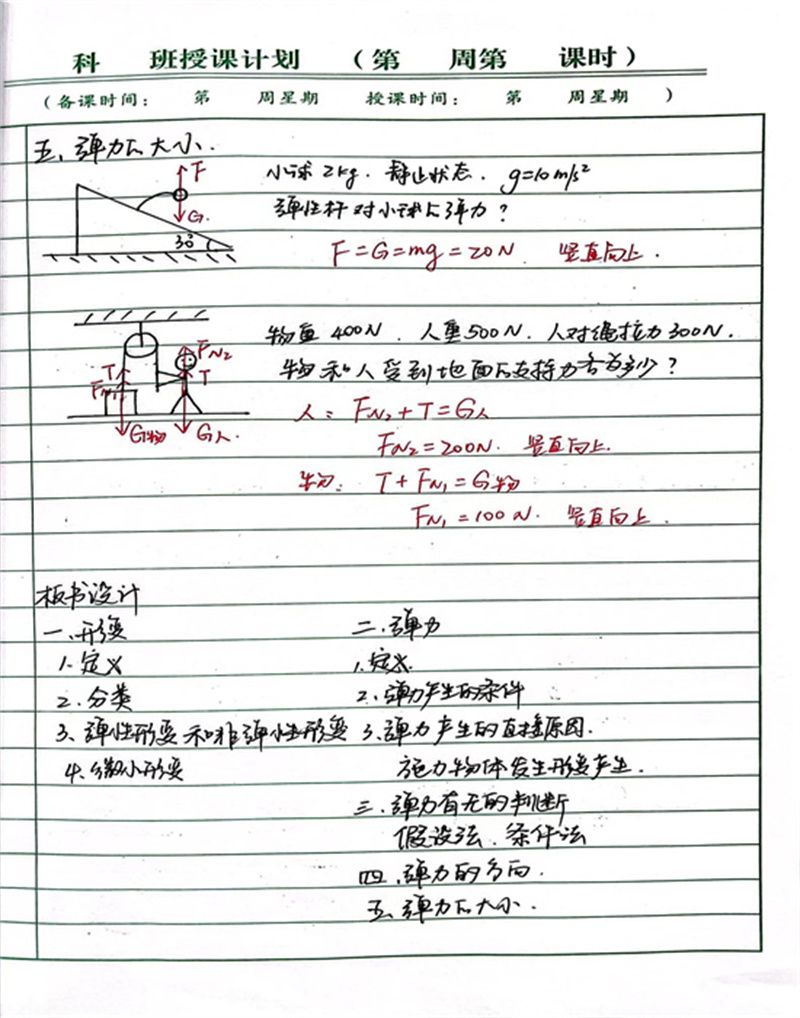 科 班授课计划 (第 周第 课时)
(备课时间: 第 周星期 授课时间: 第 周星期 )
五、弹力的大小.
F
G
30°
小球2kg. 静止状态. g=10m/s²
弹性杆对小球的弹力?
F=G=mg=20N. 竖直向上.
T
FN1
G物
FN2
T
G人
物重400N. 人重500N. 人对绳拉力300N.
物和人受到地面的支持力各为多少?
人: FN2+T=G人
FN2=200N. 竖直向上.
物: T+FN1=G物
FN1=100N. 竖直向上.
板书设计
一.形变
1.定义
2.分类
3、弹性形变和非弹性形变
4.微小形变
二.弹力
1.定义.
2.弹力产生的条件
3.弹力产生的直接原因.
施力物体发生形变产生.
三.弹力有无的判断
假设法、条件法
四.弹力的方向.
五.弹力的大小.